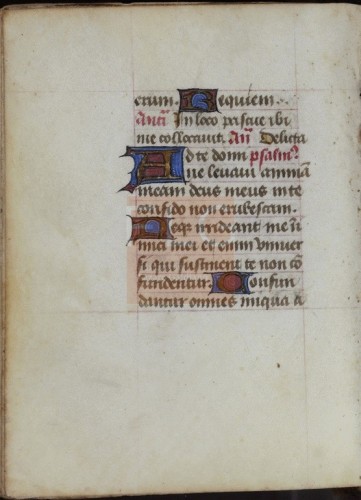 erum. Requiem.
Anti In loco pascue ibi
me collocavit. An Delicta
Ad te domi psalm
ne levavi animā
meam deus meus in te
confido non erubescam.
Neqȝ irrideant me ini
mici mei et enim univer
si qui sustinent te non cō
fundentur. Confun
dantur omnes iniqua a